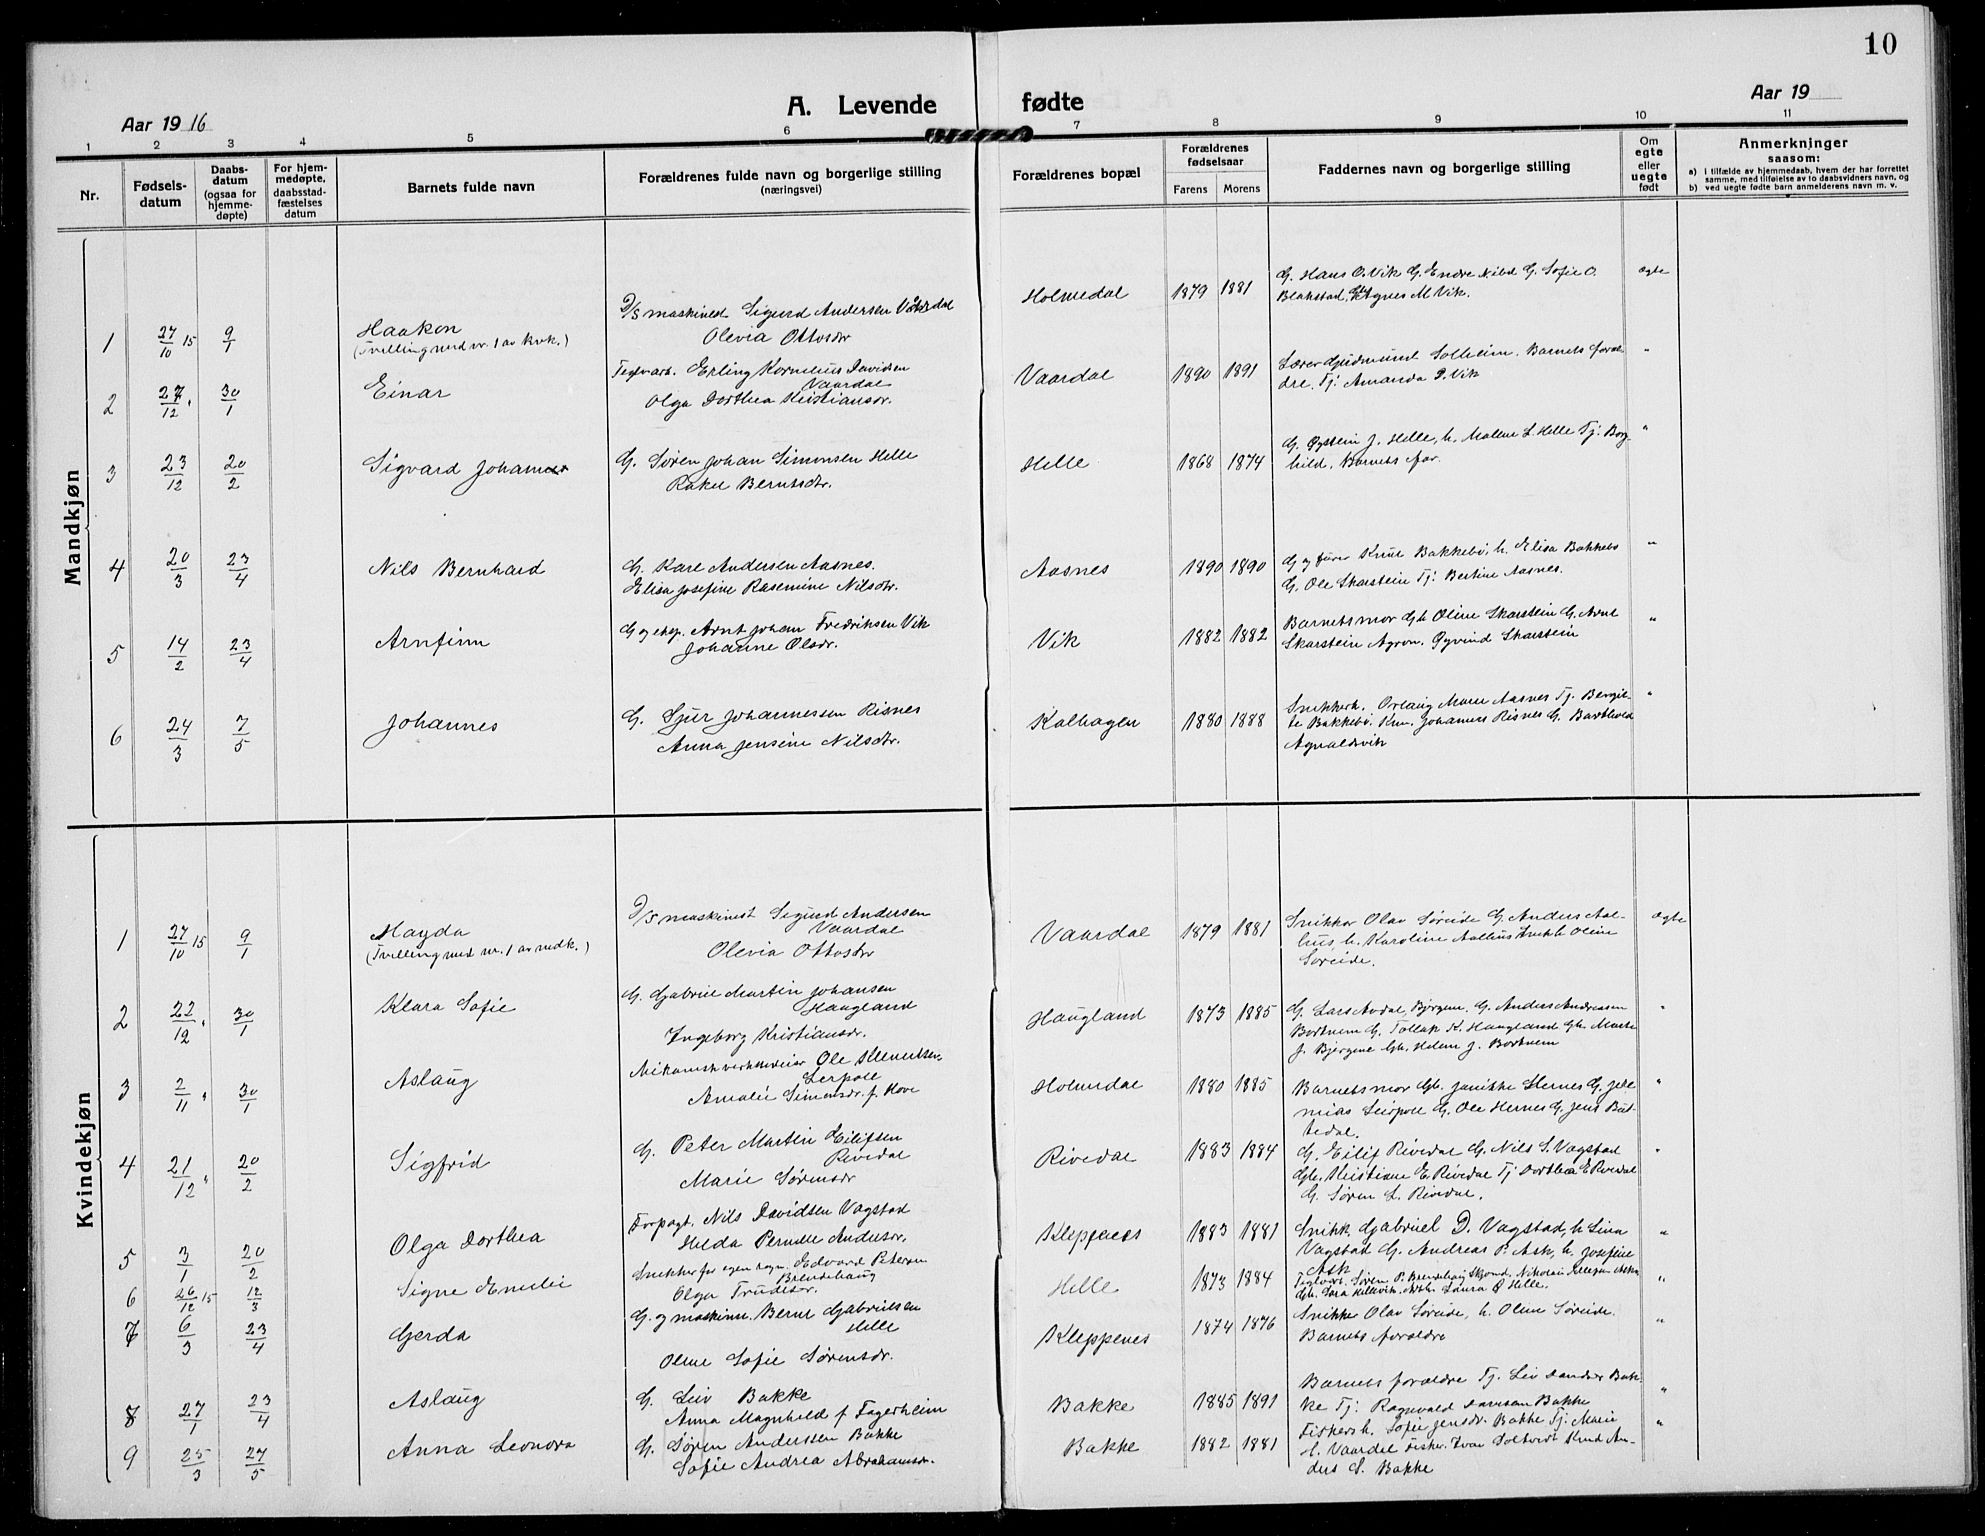 10
A. Levende fødte
Aar 1916
Aar 19
1 2 3 4 5 6 7 8 9 10 11
Nr.
Fødsels-
datum
Daabs-
datum
(ogsaa for
hjemme-
døpte)
For hjem-
medøpte,
daabsstad-
fæstelses
datum
Barnets fulde navn
Forældrenes fulde navn og borgerlige stilling
(næringsvei)
Forældrenes bopæl
Forældrenes
fødselsaar
Farens Morens
Faddernes navn og borgerlige stilling
Om
egte
eller
uegte
født
Anmerkninger
saasom:
a) i tilfælde av hjemmedaab, hvem der har forrettet
samme, med tilføielse av to daabsvidners navn, og
b) ved uegte fødte barn anmelderens navn m. v.
Mandkjøn
1 27/10 15 9/1
Haakon
(Tvilling med nr. 1 av kvk.)
D/S maskinist Sigurd Andersen Vaardal
Olevia Ottosdtr
Holmedal 1879 1881
G. Hans O. Vik G. Endre G. Sofie O.
Blakstad, Agnes M Vik.
ægte
2 27/12 " 30/1
Einar
Teglverk. Erling Kornelius Davidsen
Vaardal
Olga Dorthea Kristiansdr.
Vaardal 1890 1891
Lærer Gudmund Solheim. Barnets foræl-
dre. Tj. Amanda P. Vik
"
3 23/12 20/2
Sigvard Johannes
G. Søren Johan Simonsen Helle
Rakel Berntsdtr.
Helle 1868 1874
G. Øystein J. Helle, h. Malene L. Helle Tj. Borg-
hild. Barnets far.
"
4 20/3 23/4
Nils Bernhard
G. Karl Andersen Aasnes.
Elisa Josefine Rasmine Nilsdtr.
Aasnes 1890 1890
G og fører Knut Bakkebø, h. Elisa Bakkebø
G. Ole Skarstein Tj: Bertine Aasnes.
"
5 14/2 23/4
Arnfinn
G og eksp. Arnt Johan Fredriksen Vik
Johanne Olsdr.
Vik 1882 1882
Barnets mor Gk Oline Skarstein G. Arnt
Skarstein Agron. Øyvind Skarstein
"
6 24/3 7/5
Johannes
G. Sjur Johannessen Risnes
Anna Jensine Nilsdtr.
Kalhagen 1880 1888
Snikkerh. Maren Aasnes Tj. Bergit-
te Bakkebø. Johannes Risnes G. Barthold
Agnaldsvik
"
Kvindekjøn
1 27/10 15 9/1
Magda
(Tvilling med nr. 1 av mdk.)
D/S maskinist Sigurd Andersen
Vaardal
Olevia Ottosdtr
Vaardal 1879 1881
Snikker Olav Søreide G. Anders Aal-
hus, h. Karoline Aalhus Snikk Oline
Søreide.
ægte
2 22/12 " 30/1
Klara Sofie
G. Gabriel Martin Johansen
Haugland
Ingeborg Kristiansdr.
Haugland 1873 1885
G. Lars Avdal, Bjørgum. G. Anders Andreasen
Bortnem G. Tollak K. Haugland Gk. Marte
J. Bjergene Gk. Helene J. Bortnem
"
3 2/11 " 30/1
Aslaug
Ole Klemetsen
Lerpoll
Amalie Simonsdr. f. Hove
Holmedal 1880 1885
Barnets mor Gk. Janikke Hernes G. Jere-
mias Leirpoll G. Ole Hernes G. Jens Bat-
tedal.
"
4 21/12 " 20/2
Sigfrid
G. Peter Martin Eilifsen
Rivedal
Marie Sørensdr
Rivedal 1883 1884
G. Eilif Rivedal G. Nils S. Vagstad
Gk. Kristiane E. Rivedal Tj Dorthea E Rivedal
G. Søren L. Rivedal.
"
5 3/1 20/2
Olga Dorthea
Forpagt. Nils Davidsen Vagstad
Hilda Pernille Andersdr.
Kleppenes 1883 1881
Snikk. Gabriel D. Vagstad, h Lina
Vagstad G. Andreas P. Ask, h. Josefine
Ask
"
6 26/12 15 12/3
Signe Emelie
Snikker for egen regn. Edvard Petersen
Brendehaug
Olga Trudesdr.
Helle 1873 1884
Teglverk. Søren P. Brendehaug Nikolai
Gk. Sara Hellevik. Laura Ø Helle.
"
7 6/3 23/4
Gerda
G. og maskinm. Bernt Gabrielsen
Helle
Oline Sofie Sørensdr.
Kleppenes 1874 1876
Snikk. Olav Søreide, h. Oline Søreide.
Barnets forældre
"
8 27/1 23/4
Aslaug
G. Leiv Bakke
Anna Magnhild f Fagerheim
Bakke 1885 1891
Barnets forældre Tj. Leiv Bak-
ke Tj: Ragnvald Bakke
"
9 25/3 27/5
Anna Leonora
G. Søren Anderssen Bakke
Sofie Andrea Abrahamsdr.
Bakke 1882 1881
Fiskersh. Sofie Jensdr. Bakke Tj. Marie
H. Vaardal Fisker. Ivar An-
ders S. Bakke
"